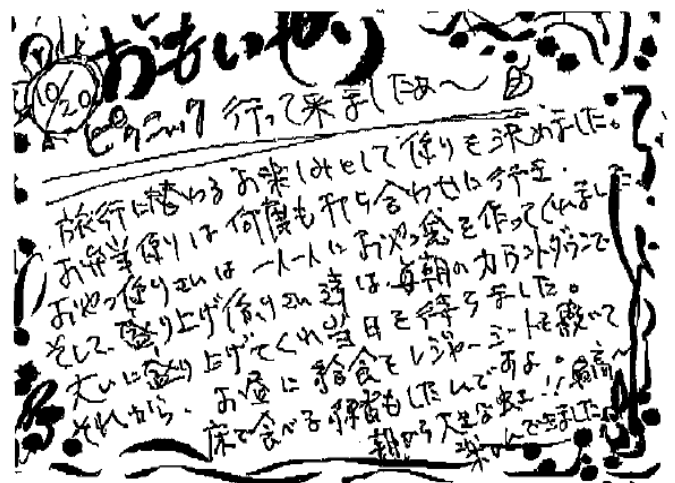 おもいやり
10/20
ピクニック行って来ましたぁ〜
旅行に替わるお楽しみとして係りを決めました。
お弁当係りは何度も打ち合わせに
おやつ係りさんは一人一人におやつ袋を作ってくれました
そして、盛り上げ係りさん達は毎朝のカウントダウンで
大いに盛り上げてくれ当日を待ちました。
それから、お昼に給食をレジャーシートを敷いて
床で食べる練習もしたんであよ。最高〜
朝から大きな虹!!
楽しんできました